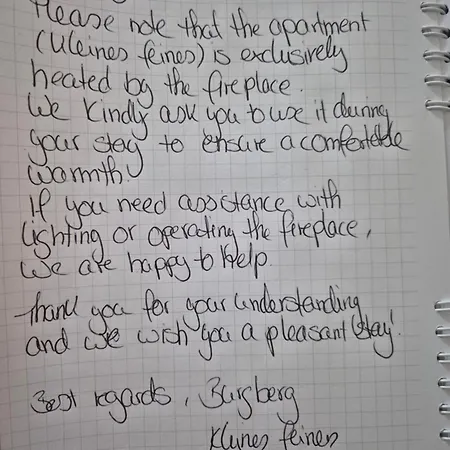 Please note that the apartment
(Kleines feines) is exclusively
heated by the fireplace.
We kindly ask you to use it during
your stay to ensure a comfortable
warmth.
If you need assistance with
lighting or operating the fireplace,
we are happy to help.
Thank you for your understanding
and we wish you a pleasant stay!
Best regards, Burgberg
Kleines feines